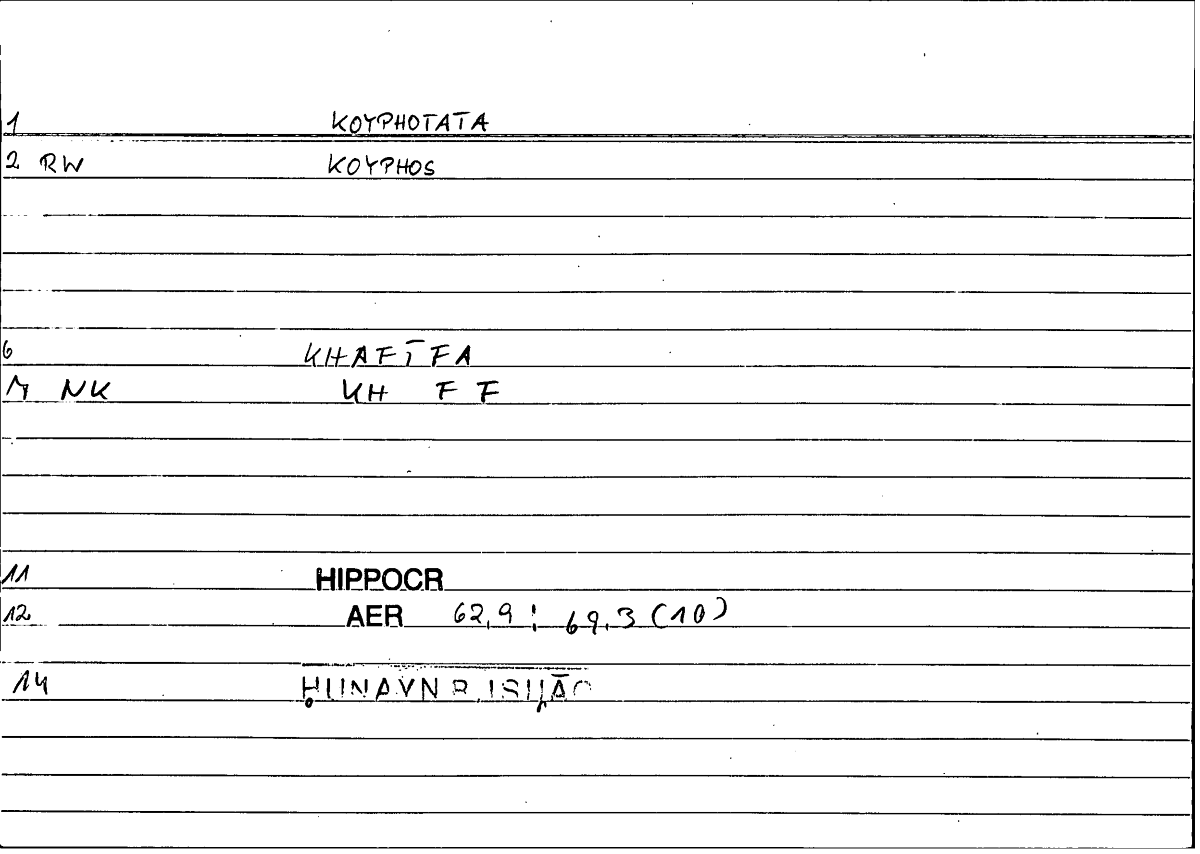 1 KOYPHOTATA
2 RW KOYPHOS
6 KHAFĪFA
NK KH F F
11 HIPPOCR
12 AER 62,9; 69,3 (10)
14